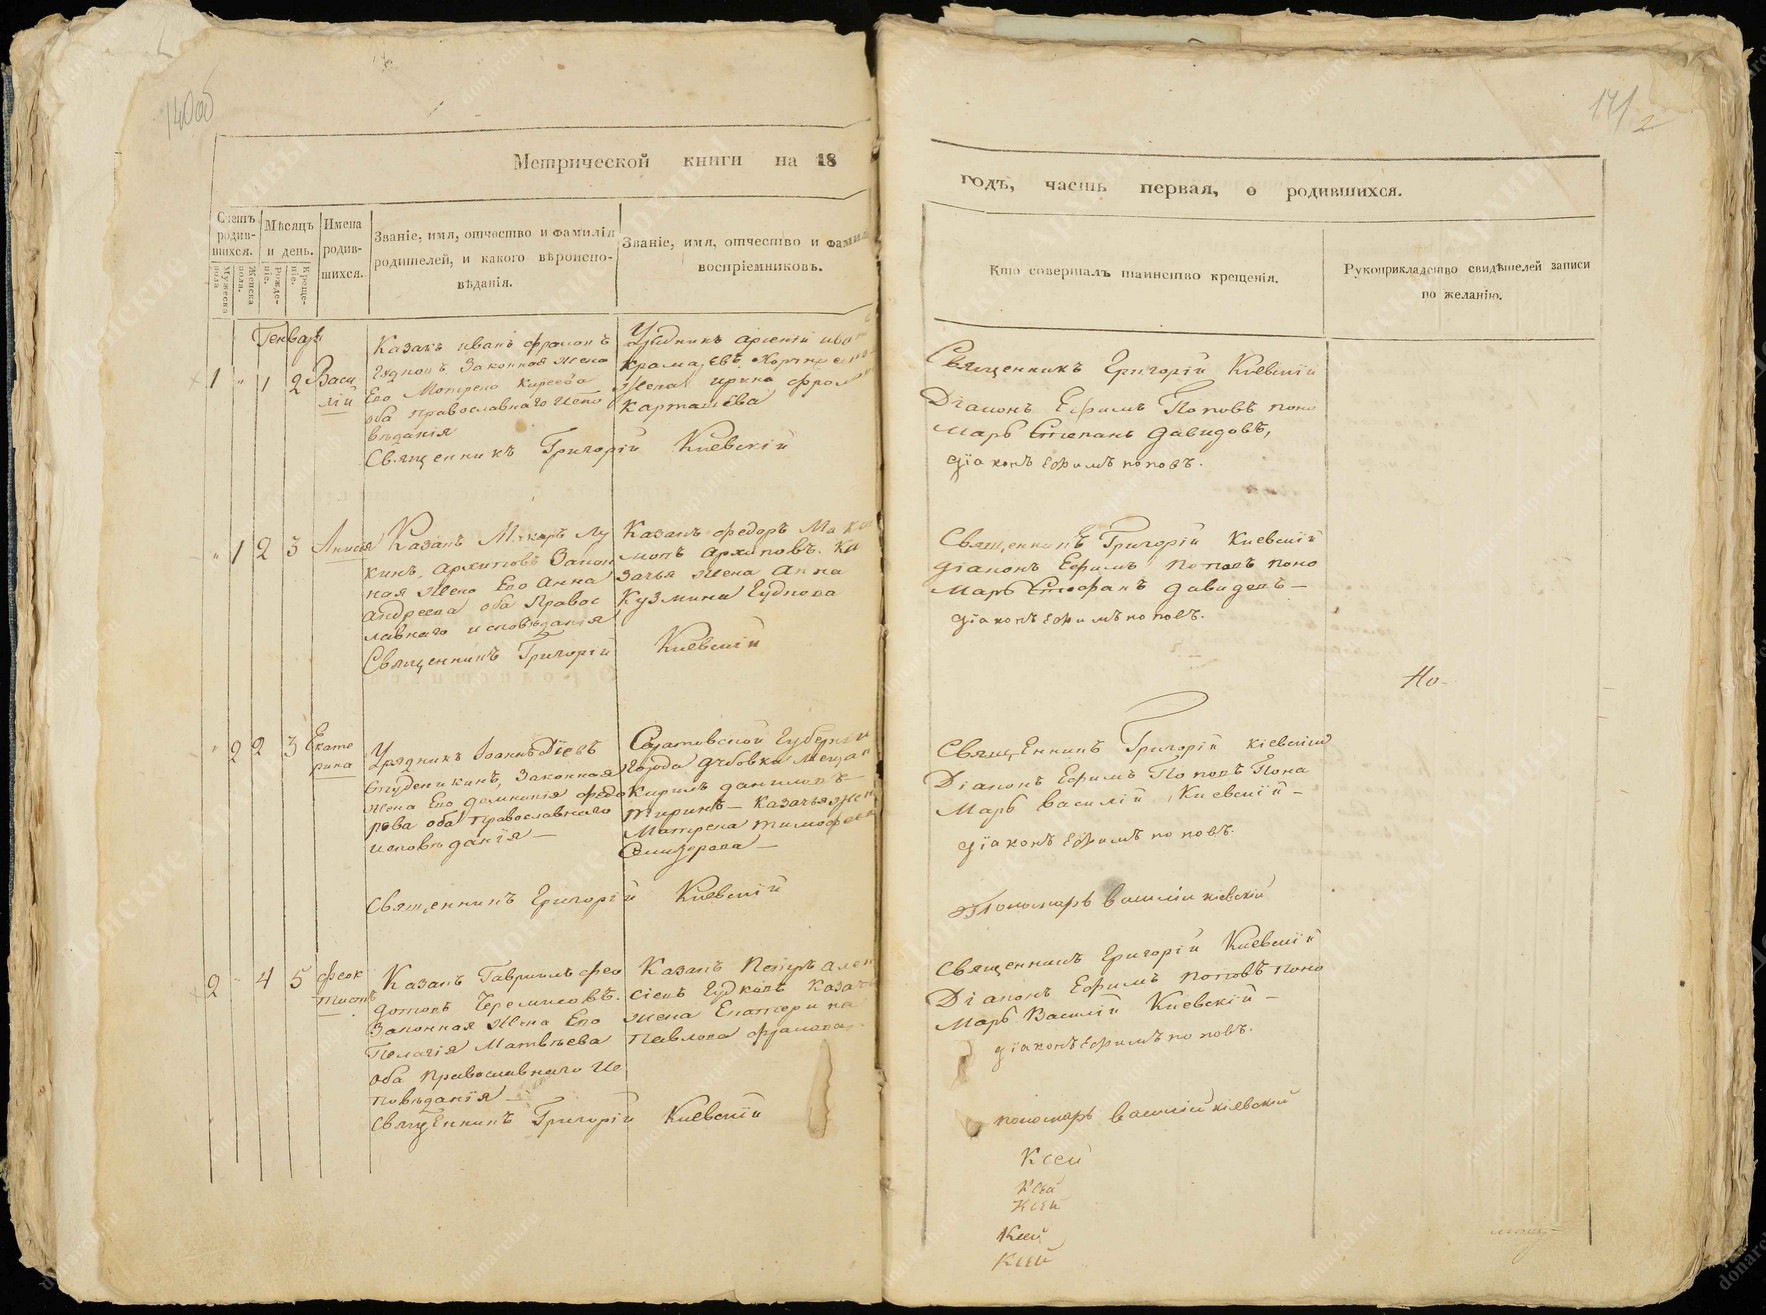 140об
141
2
Метрической книги на 18
годъ, часть первая, о родившихся.
Счетъ родившихся.
Мужеска пола
Женска пола.
Мѣсяцъ и день.
Рожденіе.
Крещеніе.
Имена родившихся.
Званіе, имя, отчество и фамилія
родителей, и какого вѣроиспо-
вѣданія.
Званіе, имя, отчество и фамил
воспріемниковъ.
Кто совершалъ таинство крещенія.
Рукоприкладство свидѣтелей записи
по желанію.
Генварь
1 " 1 2 Васи
лій
Казакъ иванъ
Гудковъ, Законная жена
Его Матрена Киреева
оба православнаго испо
вѣданія
Урядникъ арсеній ива
жена ирина
Карташева
Священникъ Григорій Кіевскій
Священникъ Григорій Кіевскій
Діаконъ Ефимъ Поповъ поно
марь Степанъ давидовъ,
діаконъ Ефимъ поповъ.
" 1 2 3 Анисія
Казакъ Макаръ Лу
кинъ, архиповъ Закон
ная жена Его Анна
андреева оба Правос
лавнаго исповѣданія
Казакъ федоръ Мак
архиповъ. Ка
зачья жена анна
Кузмина Гудкова
Священникъ Григорій Кіевскій
Священникъ Григорій Киевскій
діаконъ Ефимъ поповъ поно
марь Стефанъ давидовъ—
діаконъ Ефимъ поповъ.
Но-
" 2 2 3 Екате
рина
Урядникъ
Студеникинъ, Законная
жена Его домникія федо
рова оба Православнаго
исповѣданія—
Саратовской Губерніи
Города дубовки мещан
Кирилъ даниловъ
Матрена тимофеев
Священникъ Григорій Киевскій
Священникъ Григорій кіевскій
Діаконъ Ефимъ Поповъ Поно
марь василій Киевскій—
діаконъ Ефимъ поповъ.
Пономарь василій кіевскій
2 " 4 5 феок
тистъ
Казакъ Гавриилъ фео
дотовъ Черемисовъ.
Законная жена Его
Пелагія Матвѣева
оба православнаго ис
повѣданія—
Казакъ Петръ алек
сіевъ Гудковъ Казачь
жена Екатерина
Павлова
Священникъ Григорій Киевскій
Священникъ Григорій Киевскій
Діаконъ Ефимъ поповъ поно
марь Василій Киевскій—
діаконъ Ефимъ поповъ.
пономарь василій кіевской
Ксей
Ксей
Ксей
Ксей
Ксей